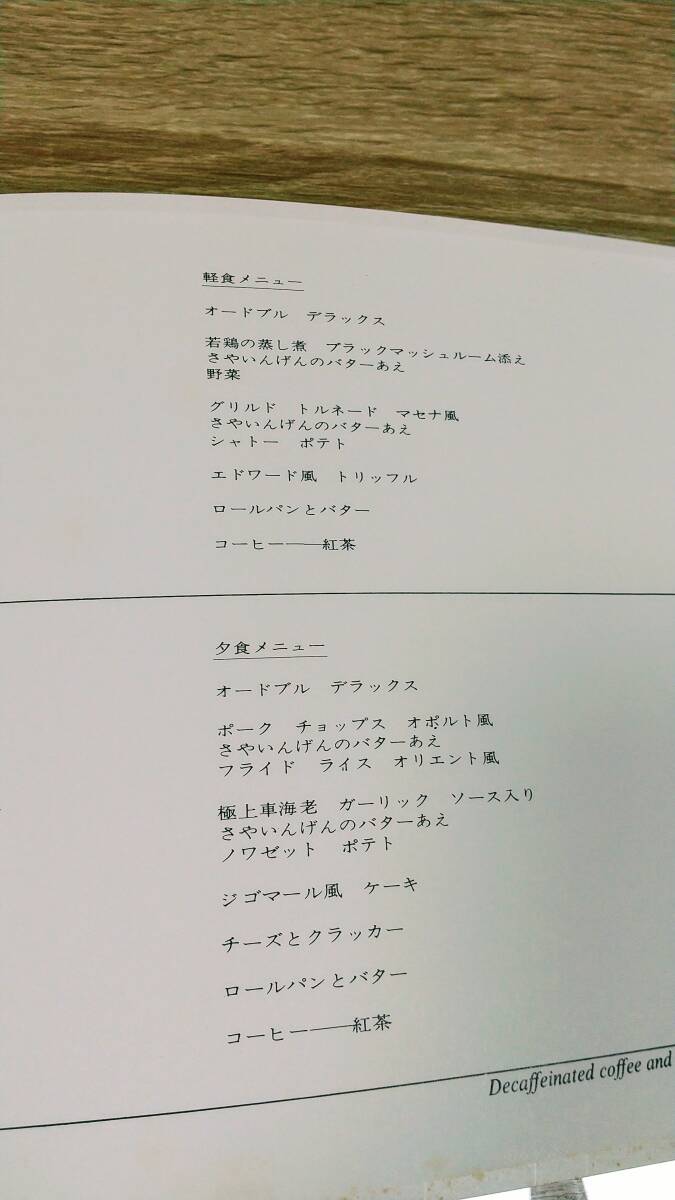 軽食メニュー
オードブル デラックス
若鶏の蒸し煮 ブラックマッシュルーム添え
さやいんげんのバターあえ
野菜
グリルド トルネード マセナ風
さやいんげんのバターあえ
シャトー ポテト
エドワード風 トリッフル
ロールパンとバター
コーヒー――紅茶
夕食メニュー
オードブル デラックス
ポーク チョップス オポルト風
さやいんげんのバターあえ
フライド ライス オリエント風
極上車海老 ガーリック ソース入り
さやいんげんのバターあえ
ノワゼット ポテト
ジゴマール風 ケーキ
チーズとクラッカー
ロールパンとバター
コーヒー――紅茶
Decaffeinated coffee and